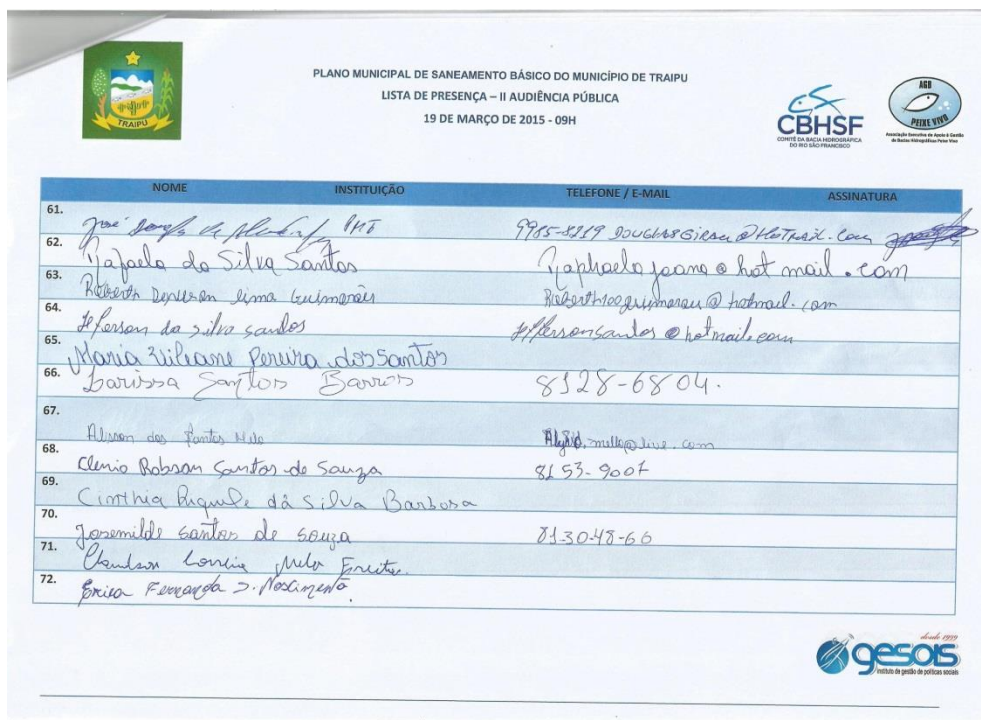 PLANO MUNICIPAL DE SANEAMENTO BÁSICO DO MUNICÍPIO DE TRAIPU
LISTA DE PRESENÇA – II AUDIÊNCIA PÚBLICA
19 DE MARÇO DE 2015 - 09H
TRAIPU
CBHSF
COMITÊ DA BACIA HIDROGRÁFICA
DO RIO SÃO FRANCISCO
AGB
PEIXE VIVO
Associação Executiva de Apoio à Gestão
de Bacias Hidrográficas Peixe Vivo
NOME INSTITUIÇÃO TELEFONE / E-MAIL ASSINATURA
61. José de 9985-8219 DOUGLASGIRAU@HOTMAIL.COM
62. Rafaela da Silva Santos Raphaelajoana@hotmail.com
63. Lima Guimarães @hotmail.com
64. Jefferson da Silva Santos Jeffersonsantos@hotmail.com
65. Maria Pereira dos Santos
66. Larissa Santos Barros 8128-6804.
67. Alisson dos Santos Melo
68. Clenio Robson Santos de Souza 8153-9007
69. Cinthia da Silva Barbosa
70. Josemilde santos de souza 8130-48-66
71. Melo Freitas.
72. Erica Fernanda S. Nascimento.
desde 1999
gesois
instituto de gestão de políticas sociais